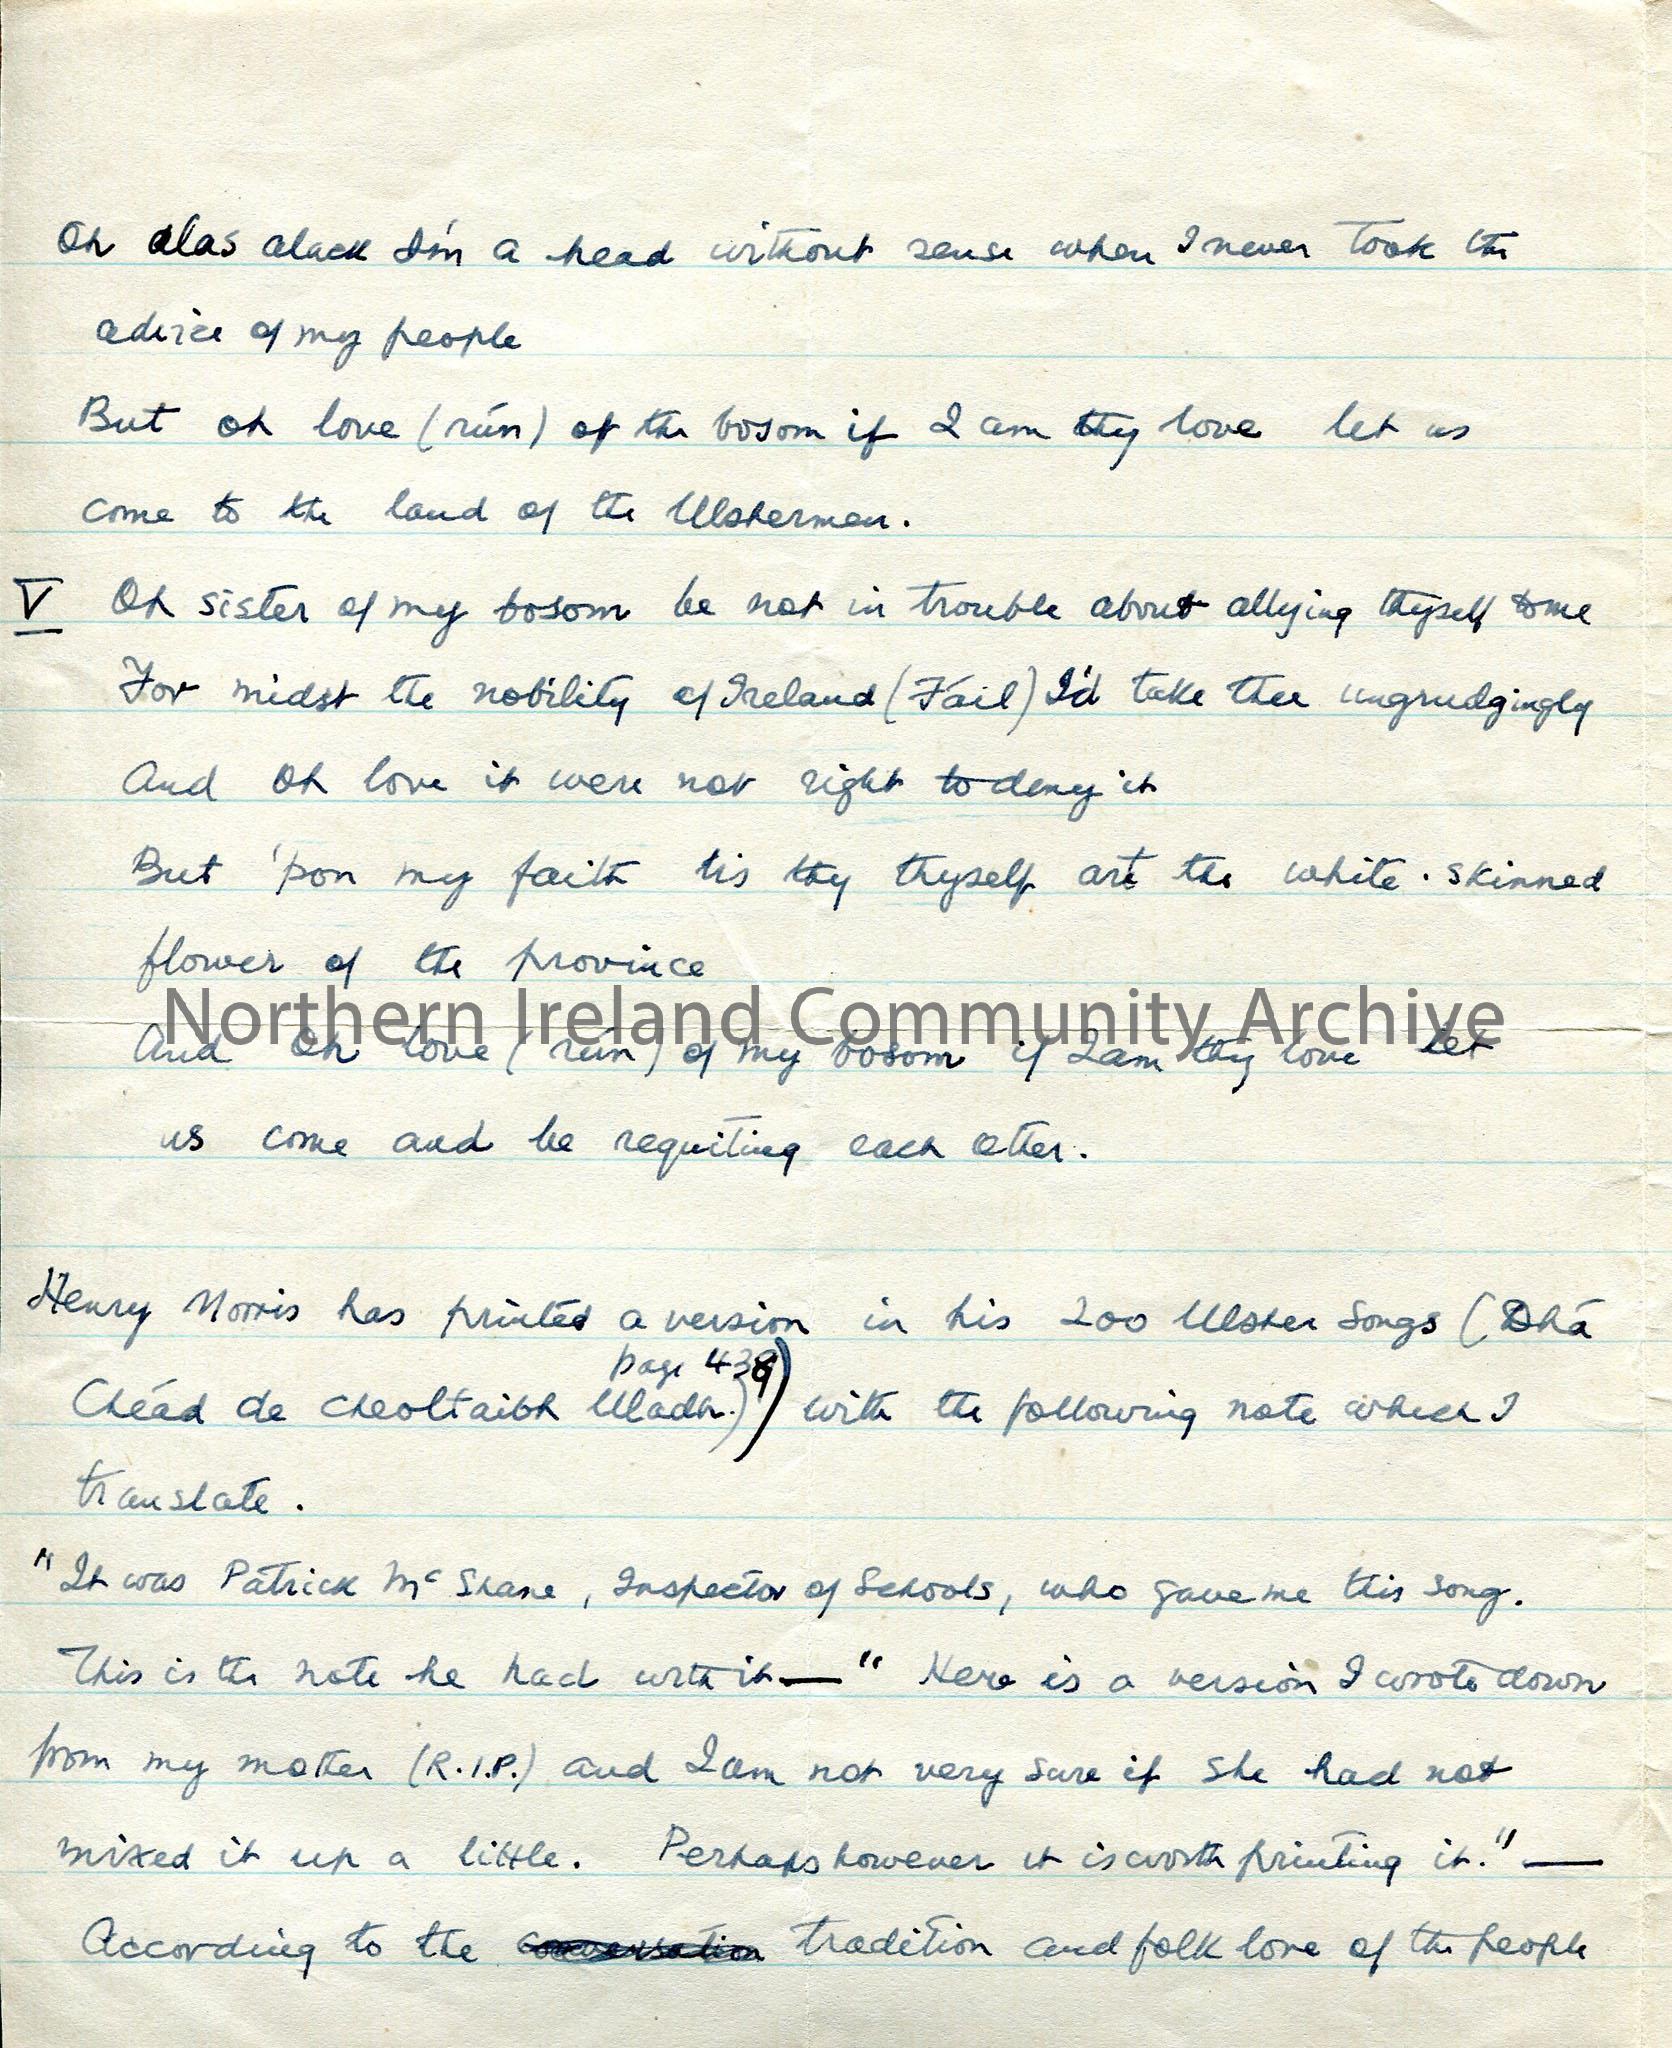 Oh alas alack I'm a head without sense when I never took the
advice of my people
But oh love (rún) of the bosom if I am thy love let us
come to the land of the Ulstermen.
V Oh sister of my bosom be not in trouble about allying thyself to me
For midst the nobility of Ireland (Fáil) I'd take thee ungrudgingly
And Oh love it were not right to deny it
But 'pon my faith tis thy thyself art the white-skinned
flower of the province
Northern Ireland Community Archive
And Oh love (rún) of my bosom if I am thy love let
us come and be requiting each other.
Henry Morris has printed a version in his 200 Ulster Songs (Dhá
page 439)
Chéad de cheoltaibh Uladh.) with the following note which I
translate.
"It was Patrick Mc Shane, Inspector of Schools, who gave me this song.
This is the note he had with it — " Here is a version I wrote down
from my mother (R.I.P.) and I am not very sure if she had not
mixed it up a little. Perhaps however it is worth printing it." —
According to the conversation tradition and folk lore of the people